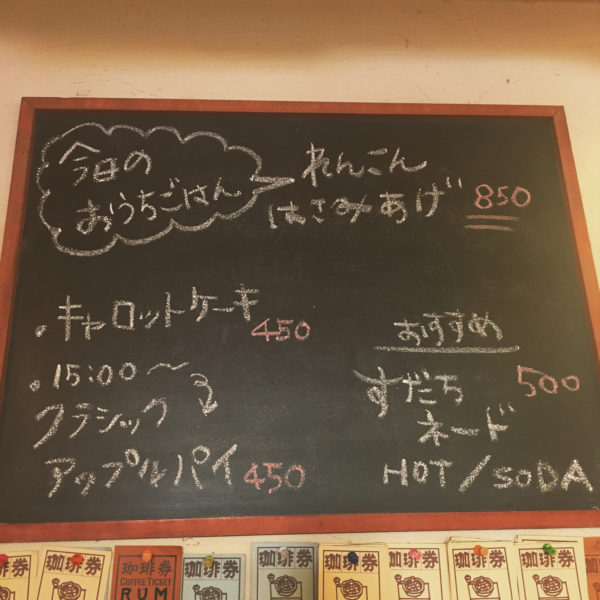 今日の
おうちごはん
れんこん
はさみあげ 850
・キャロットケーキ
450
・15:00～
クラシック
アップルパイ 450
おすすめ
すだち 500
ネード
HOT/SODA
珈琲券
珈琲券
珈琲券
COFFEE TICKET
RUM
珈琲券
珈琲券
珈琲券
珈琲券
珈琲券
珈琲券